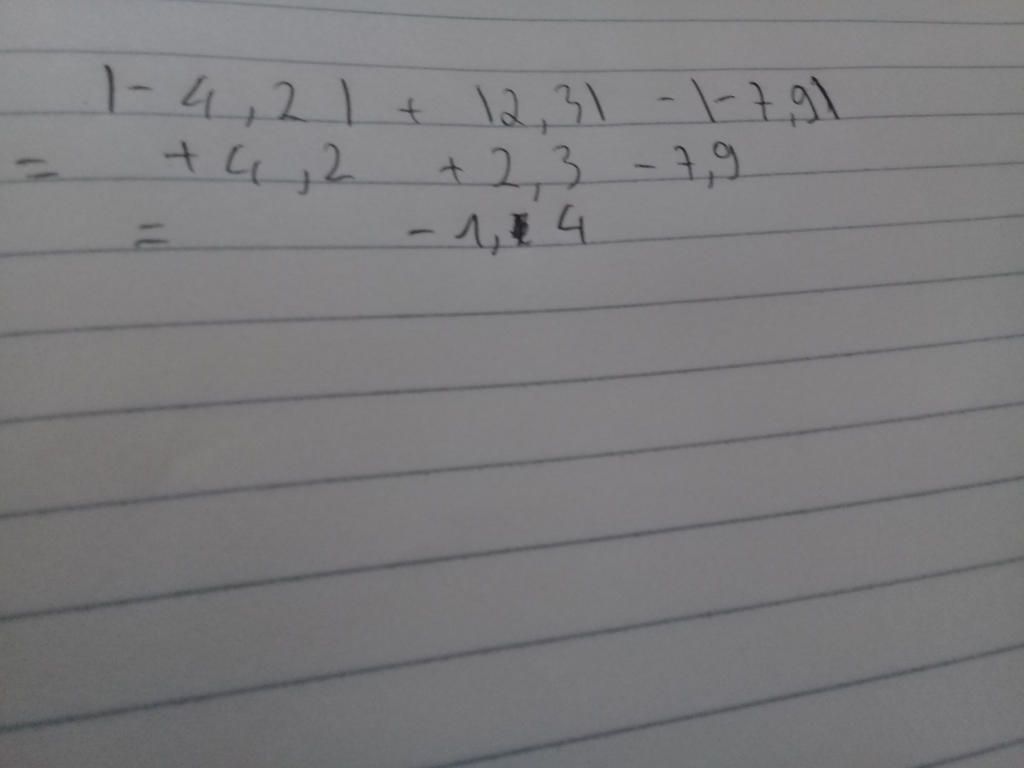 |-4,2| + |2,3| - |-7,9|
= +4,2 +2,3 -7,9
= -1,4